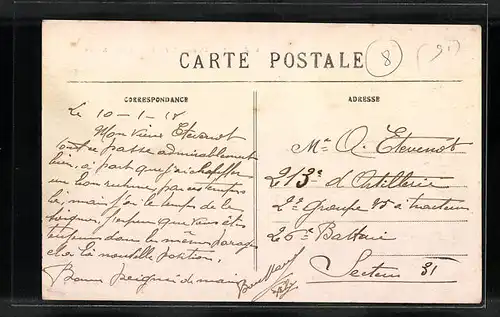 CARTE POSTALE
8
CORRESPONDANCE
ADRESSE
Le 10-1-18
Mon vieux Etevenot
tout se passe admirablement
bien, à part que j'ai
un bon rhume, par ces temps
ci, mais j'ai le temps de le
soigner, j'espère que vous êtes
toujours dans les mêmes parages
et à la nouvelle position.
Bonne poignée de main
Mr O. Etevenot
213e d'Artillerie
2e groupe 75 à tracteurs
26e Batterie
Secteur 31